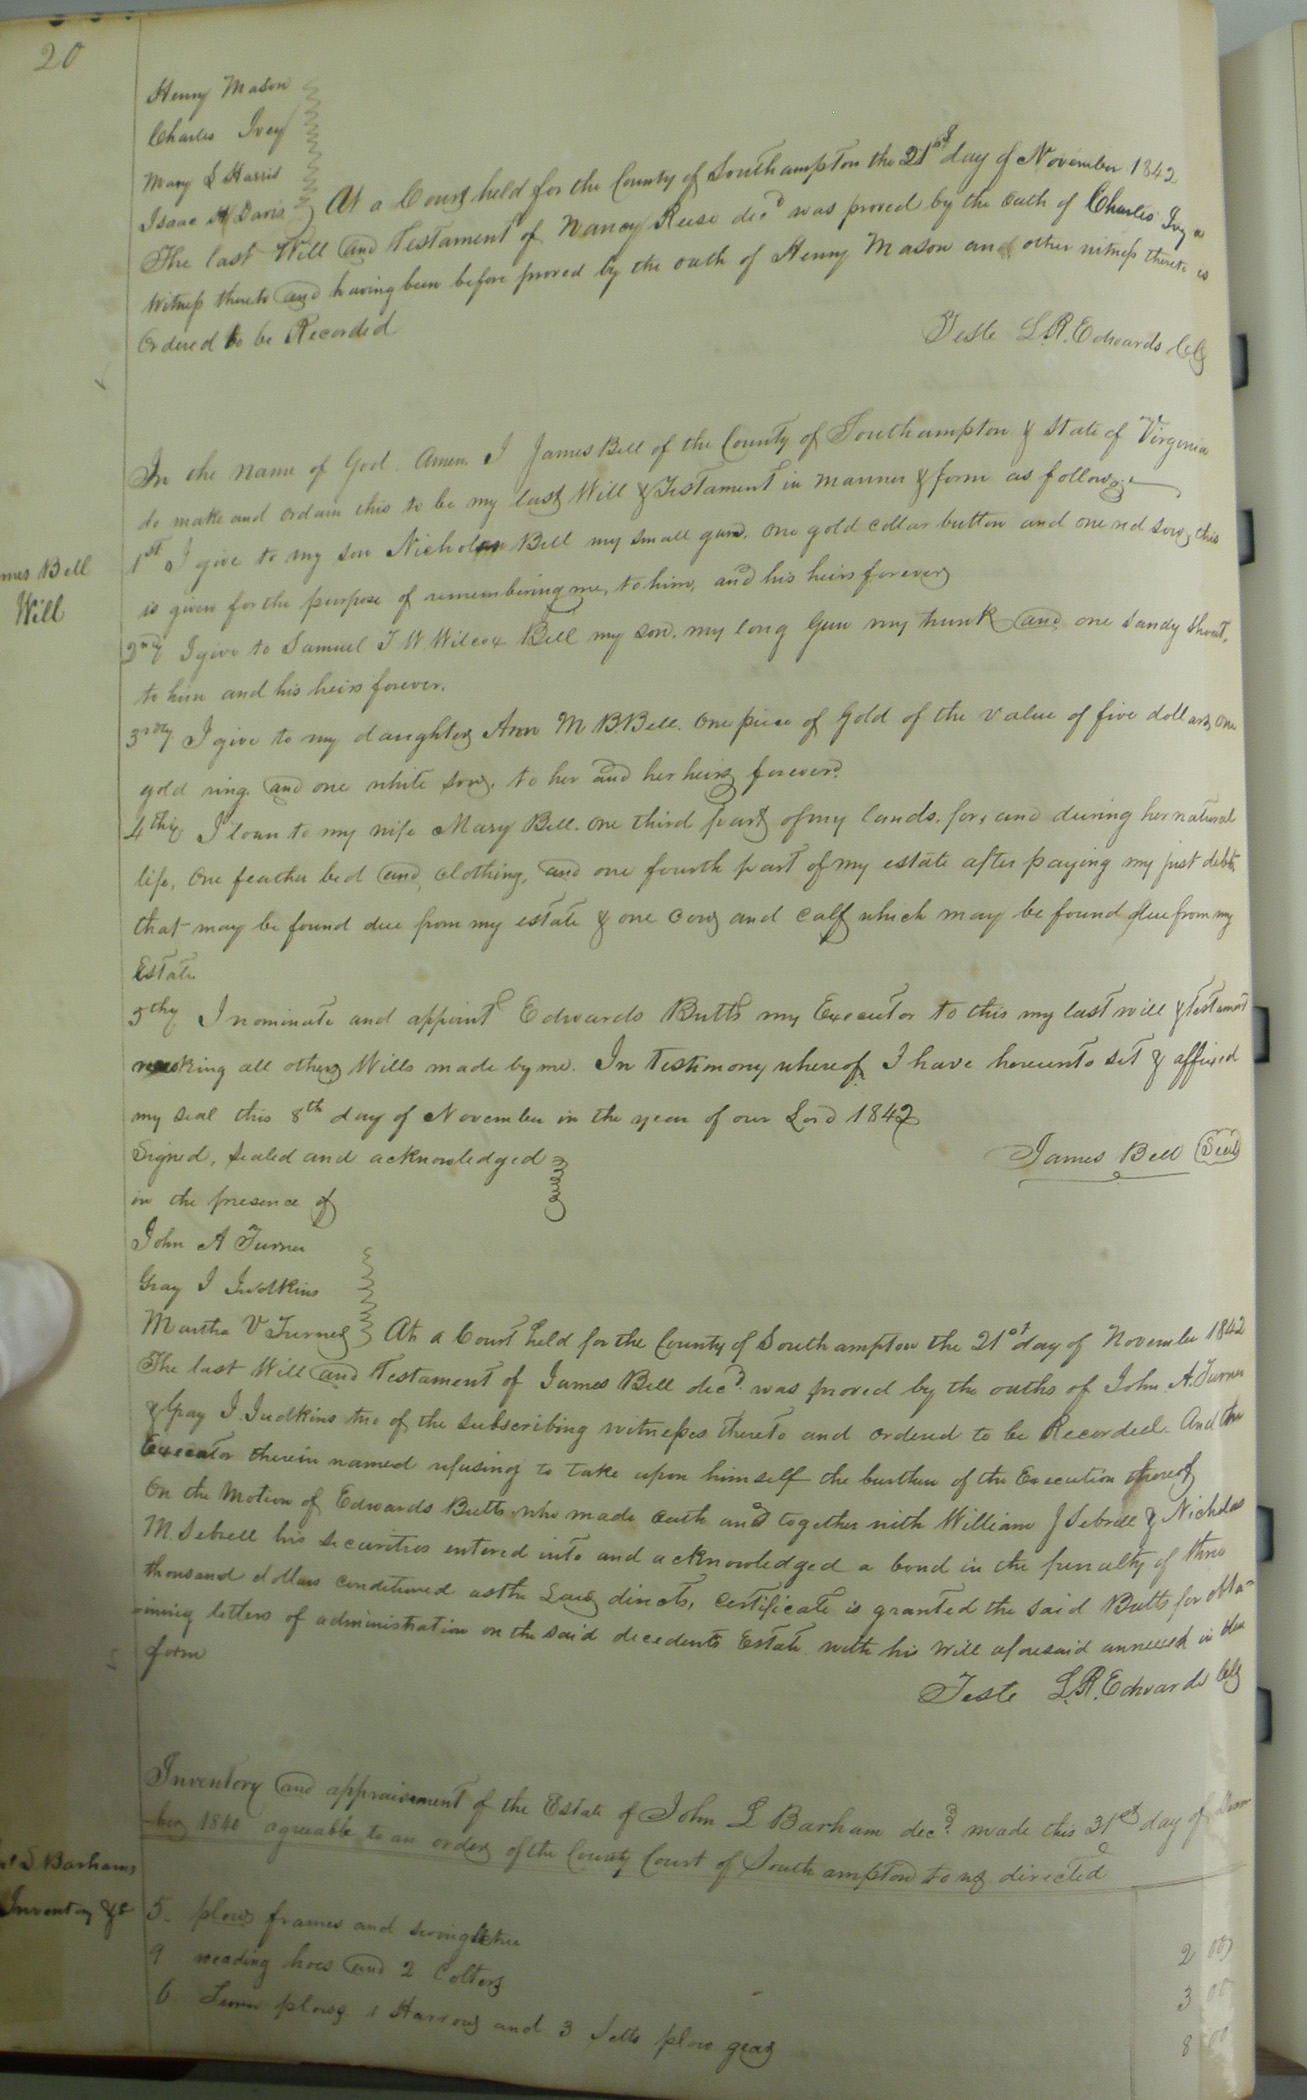 20
Henry Mason
Charles Ivey
Mary L Harris
Isaac H Davis At a Court held for the County of Southampton the 21st day of November 1842
The last Will and Testament of Nancy Reese decd was proved by the oath of Charles Ivy a
witness thereto and having been before proved by the oath of Henry Mason and other witness thereto is
Ordered to be Recorded
Teste L.R. Edwards Clk
In the name of God Amen. I James Bell of the County of Southampton & State of Virginia
do make and ordain this to be my last Will & Testament in manner & form as follows,
mes Bell
Will
1st I give to my son Nicholas Bell my small gun, one gold collar button and one red sow, this
is given for the purpose of remembering me, to him, and his heirs forever
2ndly I give to Samuel T W Wilcox Bell my son, my long Gun my trunk and one Sandy Shoat,
to him and his heirs forever.
3rdly I give to my daughter Ann M B. Bell. One piece of Gold of the value of five dollars, one
gold ring and one white sow, to her and her heirs forever.
4thly I loan to my wife Mary Bell. one third part of my lands, for, and during her natural
life, One feather bed and clothing, and one fourth part of my estate after paying my just debts
that may be found due from my estate & one cow and calf which may be found due from my
Estate
5thly I nominate and appoint Edwards Butts my Executor to this my last will & Testament
revoking all other Wills made by me. In Testimony whereof I have hereunto set & affixed
my seal this 8th day of November in the year of our Lord 1842
Signed, sealed and acknowledged
James Bell Seal
in the presence of
John A Turner
Gray I Judkins
Martha V Turner At a Court held for the County of Southampton the 21st day of November 1842
The last Will and Testament of James Bell decd. was proved by the oaths of John A. Turner
& Gray I. Judkins two of the subscribing witnesses thereto and ordered to be Recorded. And the
Executor therein named refusing to take upon himself the burthen of the Execution thereof
On the Motion of Edwards Butts who made oath and together with William J Sebrell & Nicholas
M. Sebrell his securities entered into and acknowledged a bond in the penalty of three
thousand dollars conditioned as the Law directs, Certificate is granted the said Butts for obta-
-ining letters of administration on the said decedents Estate with his will aforesaid annexed in due
form
Teste L.R. Edwards Clk
Inventory and appraisement of the Estate of John L Barham decd. made this 31st day of Decem
-ber 1840 agreeable to an order of the County Court of Southampton to us directed
L Barhams
Inventory &c
5. plow frames and swingletree 2 00
9 weading hoes and 2 Colters 3 00
6 Turn plows 1 Harrow and 3 Setts plow gear 8 00